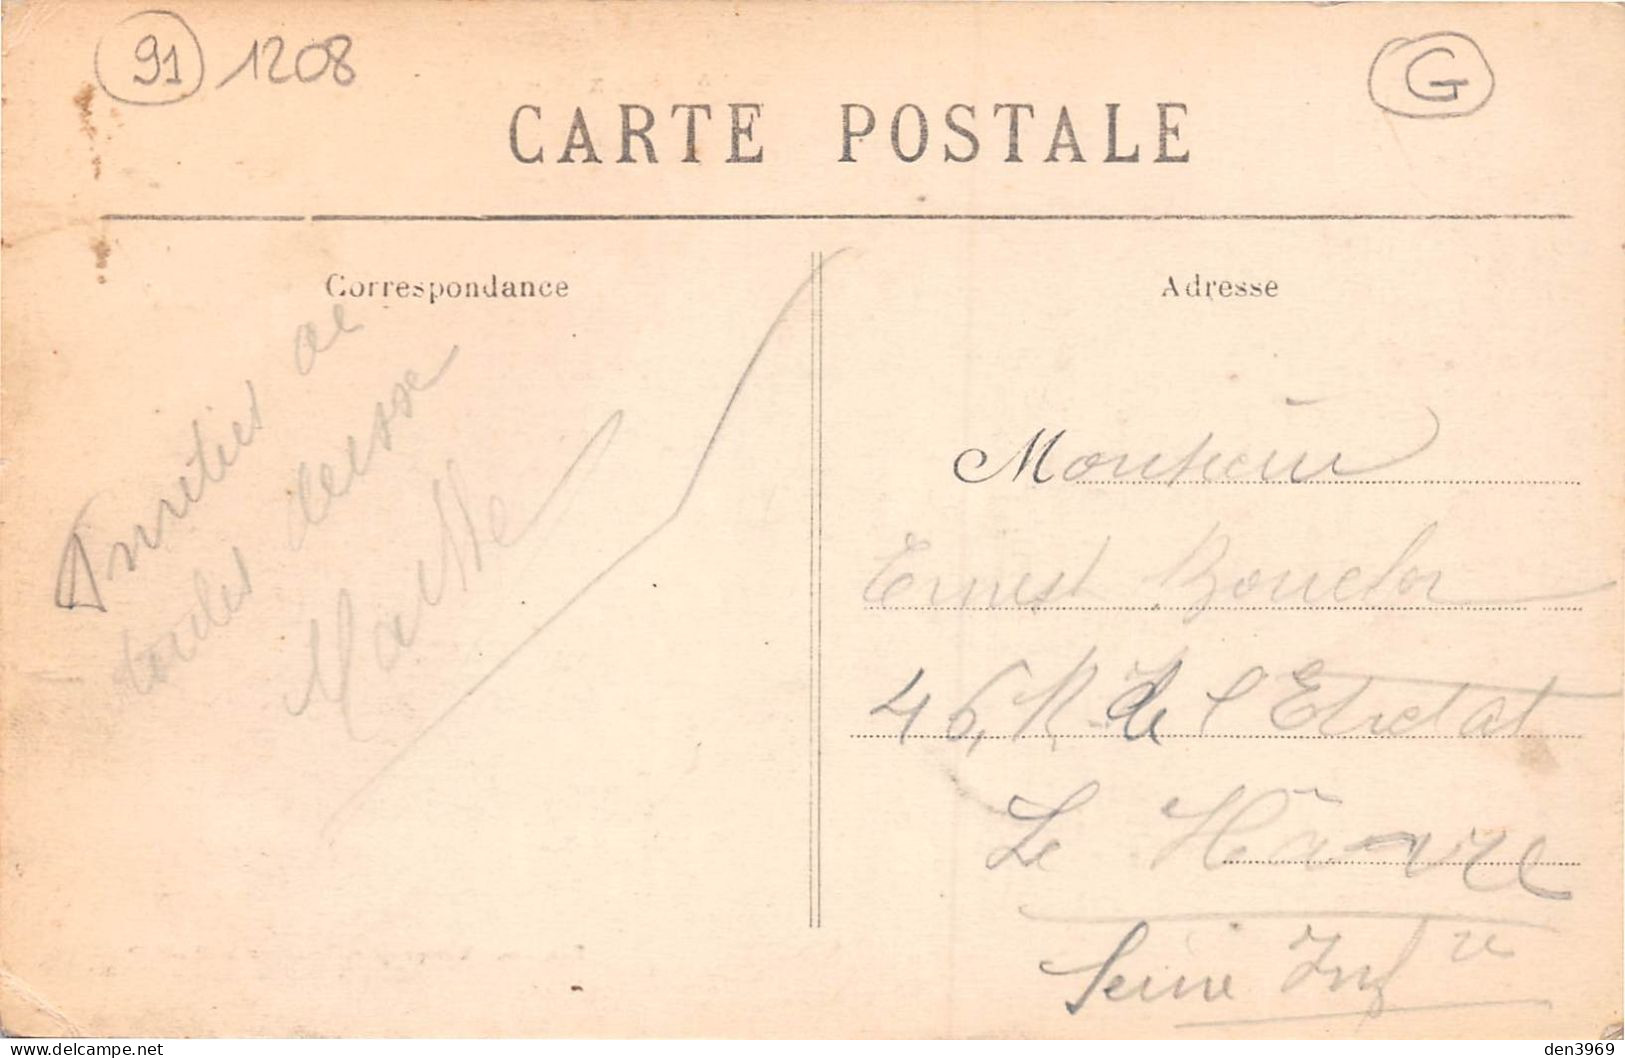 91 1208
G
CARTE POSTALE
Correspondance
Adresse
Amitiés de
toutes
Monsieur
Ernest
46, R. de l'Etretat
Le Hâvre
Seine Infre
delcampe.net
den3969